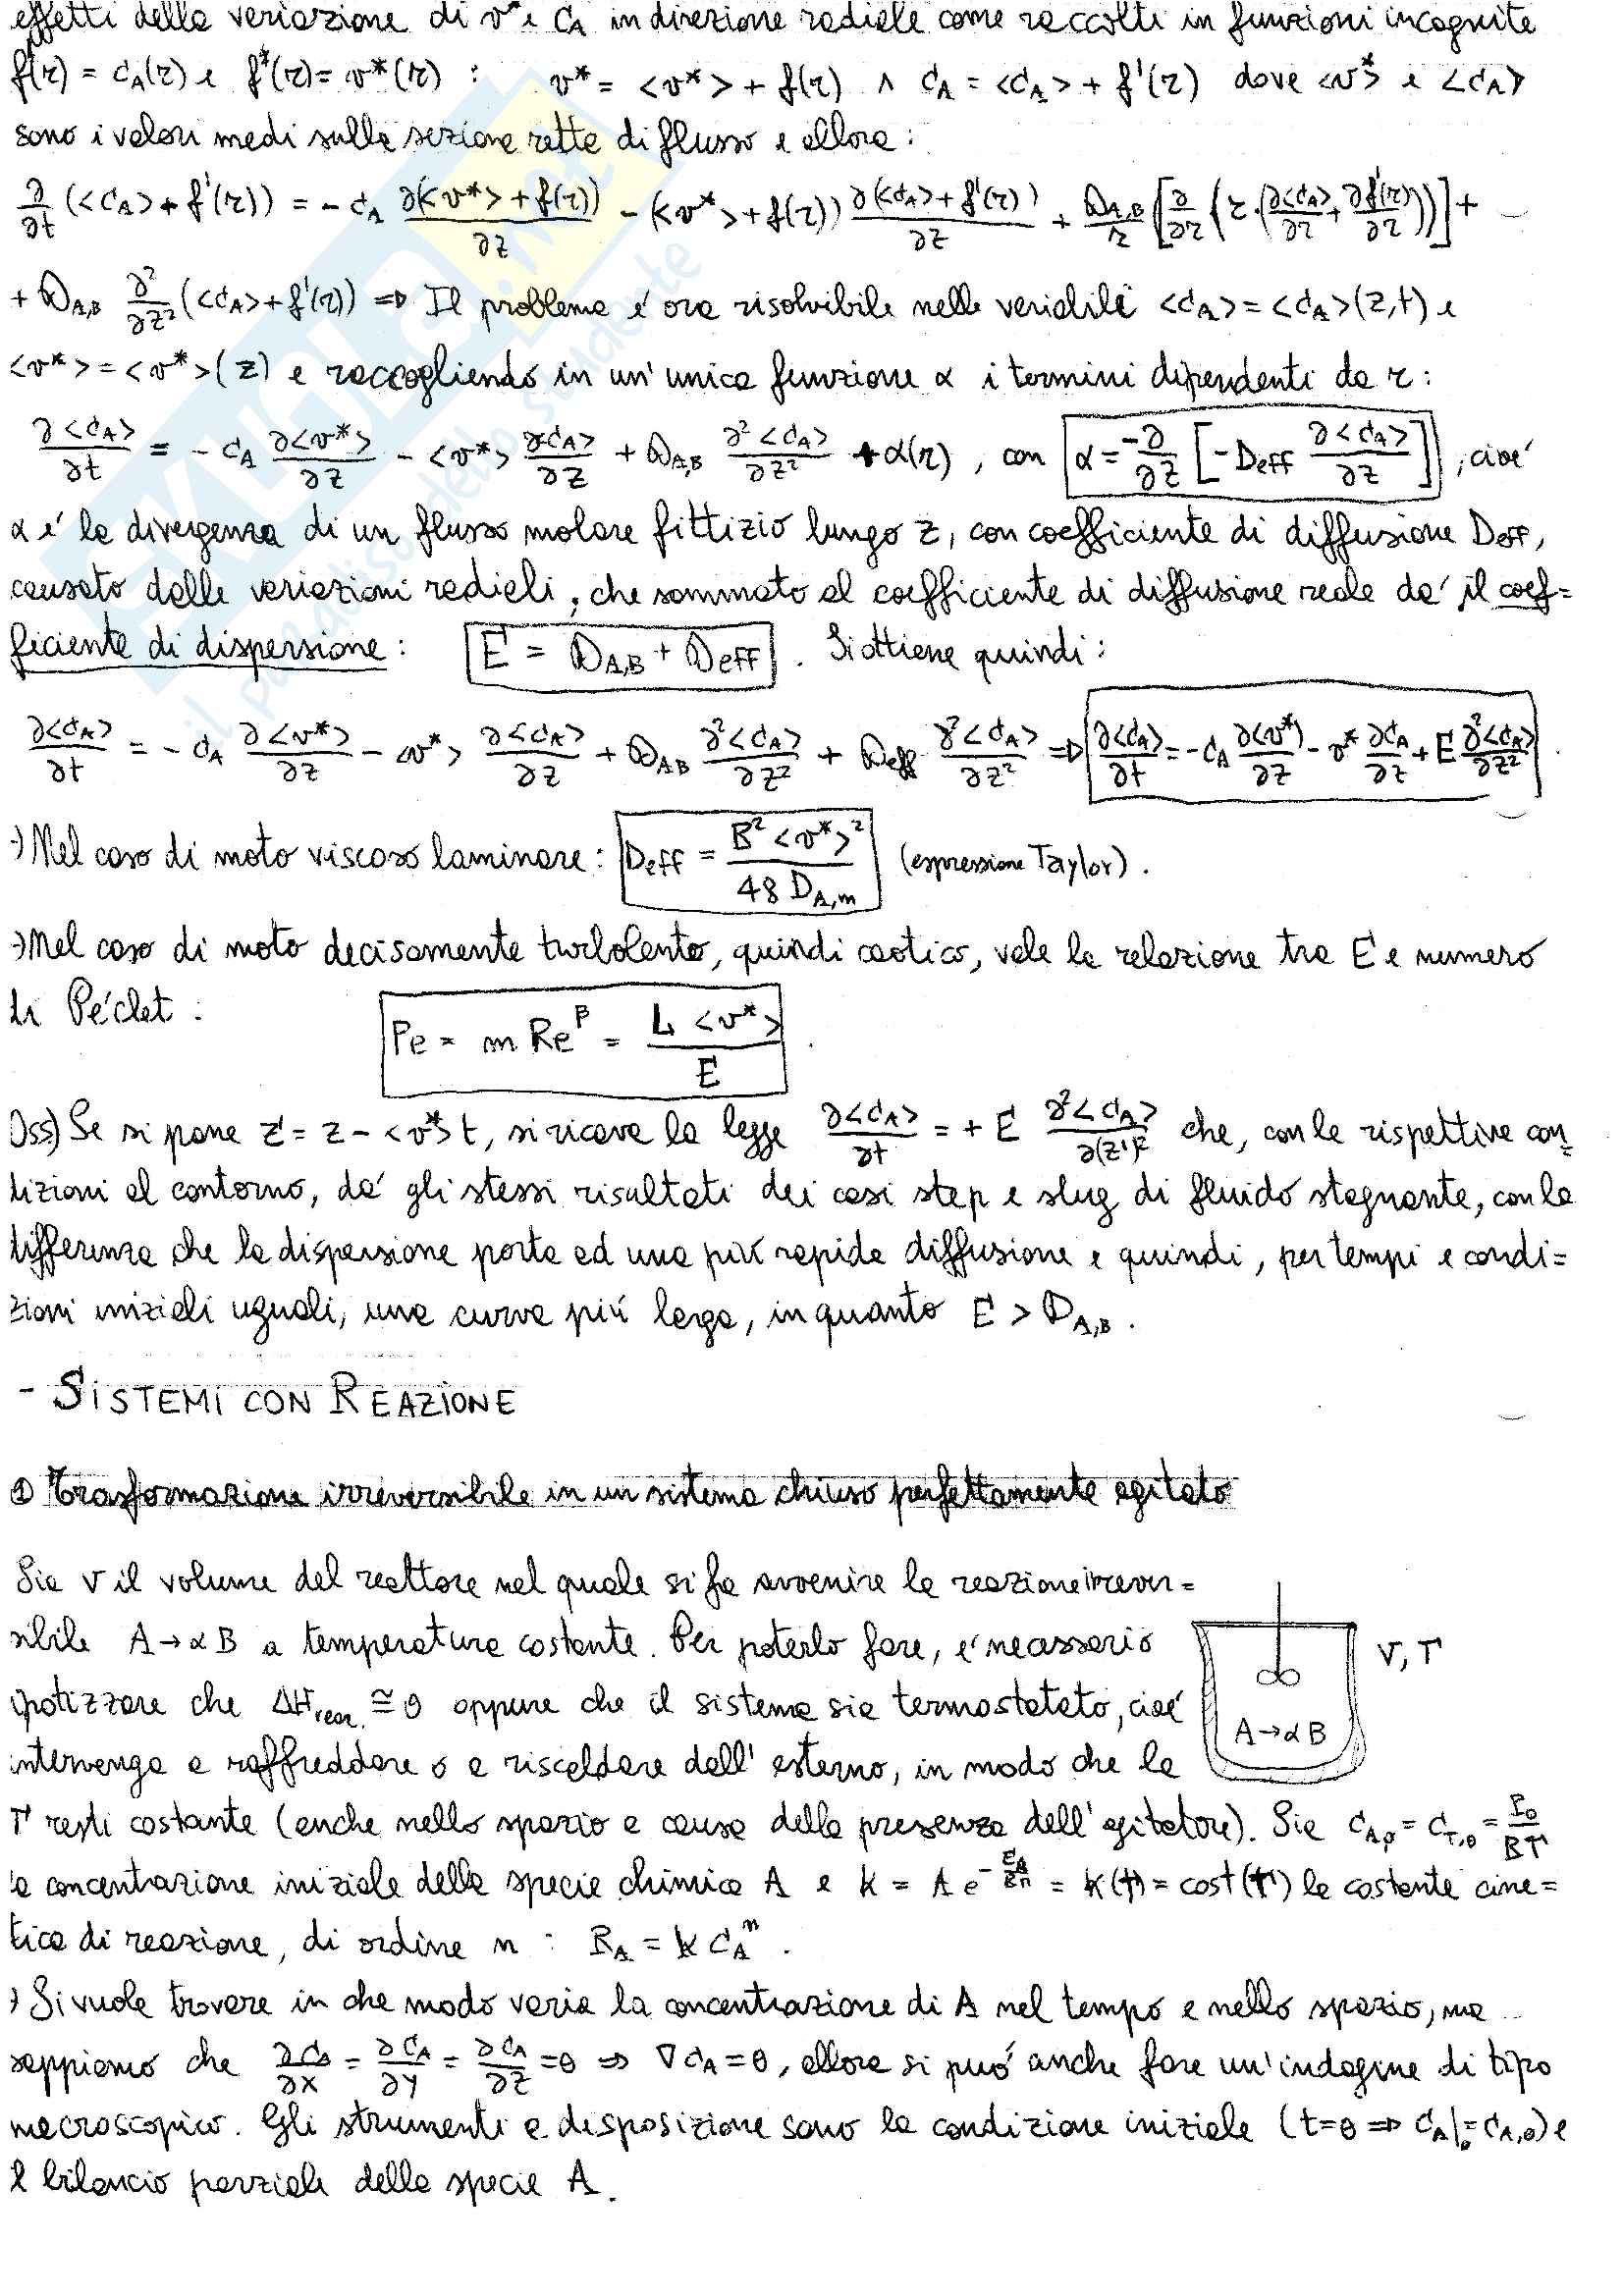 effetti della variazione di v* e C_A in direzione radiale come raccolti in funzioni incognite
f'(r) = C_A(r) e f*(r) = v*(r) : v* = <v*> + f(r) ∧ C_A = <C_A> + f'(r) dove <v*> e <C_A>
sono i valori medi sulla sezione retta di flusso e allora:
∂/∂t (<C_A> + f'(r)) = - C_A ∂(<v*> + f(r))/∂z - (<v*> + f(r)) ∂(<C_A> + f'(r))/∂z + D_A,B/r [∂/∂r (r·(∂<C_A>/∂r + ∂f'(r)/∂r))] +
+ D_A,B ∂²/∂z² (<C_A> + f'(r)) ⇒ Il problema é ora risolvibile nelle variabili <C_A> = <C_A>(z,t) e
<v*> = <v*>(z) e raccogliendo in un'unica funzione α i termini dipendenti da r:
∂<C_A>/∂t = - C_A ∂<v*>/∂z - <v*> ∂<C_A>/∂z + D_A,B ∂²<C_A>/∂z² + α(r) , con α = -∂/∂z [- Deff ∂<C_A>/∂z] , cioé
α é la divergenza di un flusso molare fittizio lungo z, con coefficiente di diffusione Deff,
causato dalle variazioni radiali, che sommato al coefficiente di diffusione reale da' il coef=
ficiente di dispersione : E = D_A,B + Deff . Si ottiene quindi :
∂<C_A>/∂t = - C_A ∂<v*>/∂z - <v*> ∂<C_A>/∂z + D_AB ∂²<C_A>/∂z² + Deff ∂²<C_A>/∂z² ⇒ ∂<C_A>/∂t = - C_A ∂<v*>/∂z - v* ∂C_A/∂z + E ∂²<C_A>/∂z² .
·) Nel caso di moto viscoso laminare : Deff = B² <v*>² / 48 D_A,m (espressione Taylor) .
·) Nel caso di moto decisamente turbolento, quindi caotico, vale la relazione tra E e numero
di Péclet : Pe = m Re^β = L <v*> / E .
Oss) Se si pone z' = z - <v*>t, si ricava la legge ∂<C_A>/∂t = + E ∂²<C_A>/∂(z')² che, con le rispettive con=
dizioni al contorno, dá gli stessi risultati dei casi step e slug di fluido stagnante, con la
differenza che la dispersione porta ad una piú rapida diffusione e quindi, per tempi e condi=
zioni iniziali uguali, una curva piú larga, in quanto E > D_A,B .
- SISTEMI CON REAZIONE
① Trasformazione irreversibile in un sistema chiuso perfettamente agitato
Sia V il volume del reattore nel quale si fa avvenire la reazione irrever=
sibile A → αB a temperatura costante. Per poterlo fare, é necessario
ipotizzare che ΔH_reaz. ≅ 0 oppure che il sistema sia termostatato, cioé
V, T
A → αB
intervenga a raffreddare o a riscaldare dall'esterno, in modo che la
T resti costante (anche nello spazio a causa della presenza dell'agitatore). Sia C_A,0 = C_T,0 = P_0/RT
la concentrazione iniziale della specie chimica A e k = A e^(-E_A/RT) = k(T) = cost(T) la costante cine=
tica di reazione, di ordine n : R_A = k C_A^n .
·) Si vuole trovare in che modo varia la concentrazione di A nel tempo e nello spazio, ma
sappiamo che ∂C_A/∂x = ∂C_A/∂y = ∂C_A/∂z = 0 ⇒ ∇C_A = 0, allora si puó anche fare un'indagine di tipo
macroscopico. Gli strumenti a disposizione sono la condizione iniziale (t=0 ⇒ C_A|_0 = C_A,0) e
il bilancio parziale della specie A.